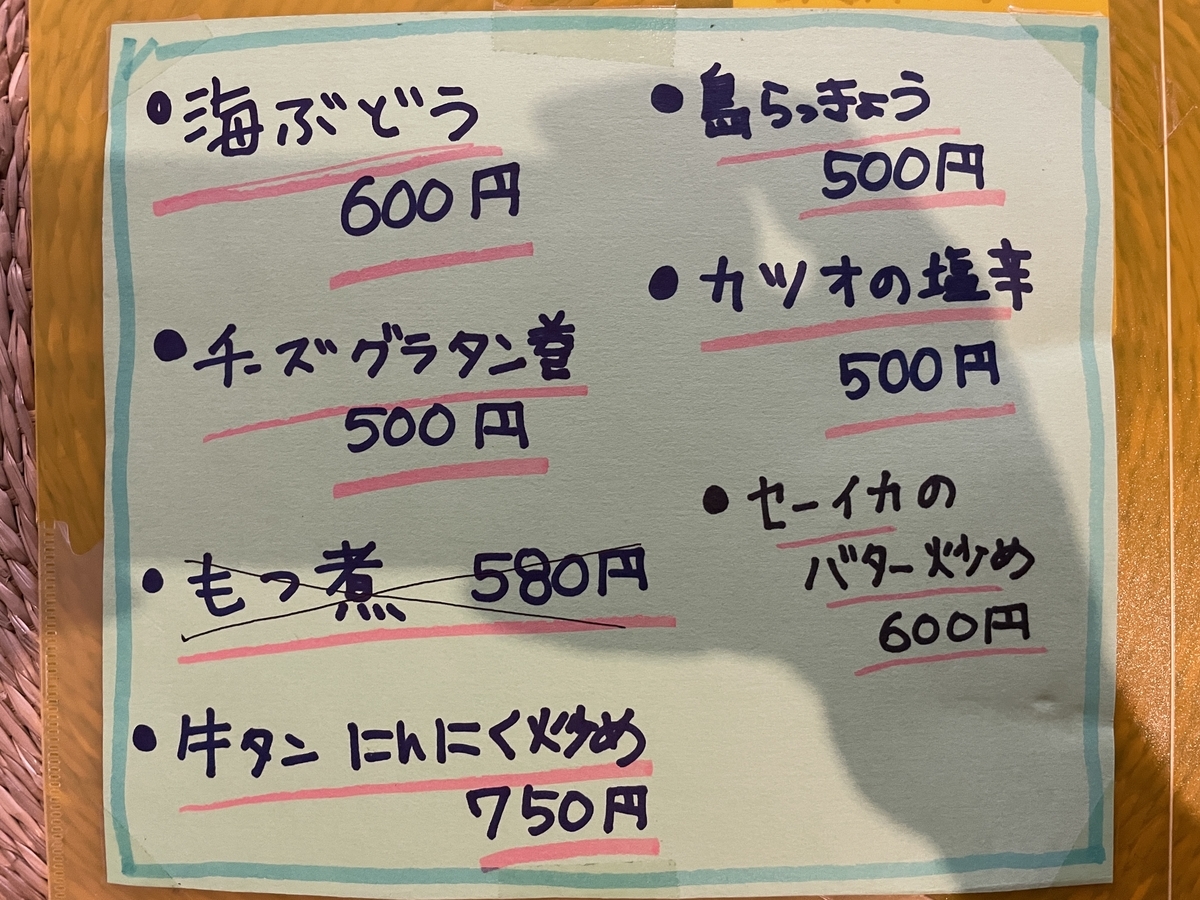 •海ぶどう
600円
•チーズグラタン巻
500円
•もつ煮 580円
•牛タンにんにく炒め
750円
•島らっきょう
500円
•カツオの塩辛
500円
•セーイカの
バター炒め
600円